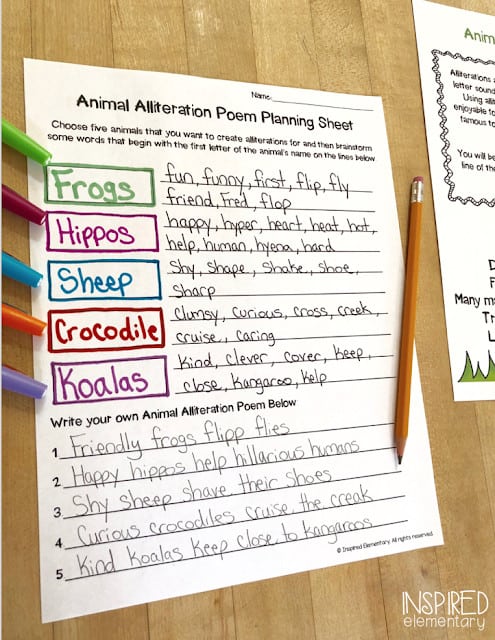 Name:
Animal Alliteration Poem Planning Sheet
Choose five animals that you want to create alliterations for and then brainstorm
some words that begin with the first letter of the animal's name on the lines below
Frogs
fun, funny, first, flip, fly
friend, Fred, flop
Hippos
happy, hyper, heart, heat, hot,
help, human, hyena, hard
Sheep
Shy, shape, shake, shoe,
Sharp
Crocodile
clumsy, curious, cross, creek,
cruise, caring
Koalas
kind, clever, cover, keep,
close, kangaroo, kelp
Write your own Animal Alliteration Poem Below
1 Friendly frogs flipp flies
2 Happy hippos help hillarious humans
3 Shy sheep shave their shoes
4 Curious crocodiles cruise the creak
5 Kind Koalas keep close to kangaroos
© Inspired Elementary. All rights reserved.
Anim
Alliterations a
letter soun
Using alli
enjoyable to
famous to
You will b
line of the
D
F
Many m
Tr
L
INSPIRED
elementary